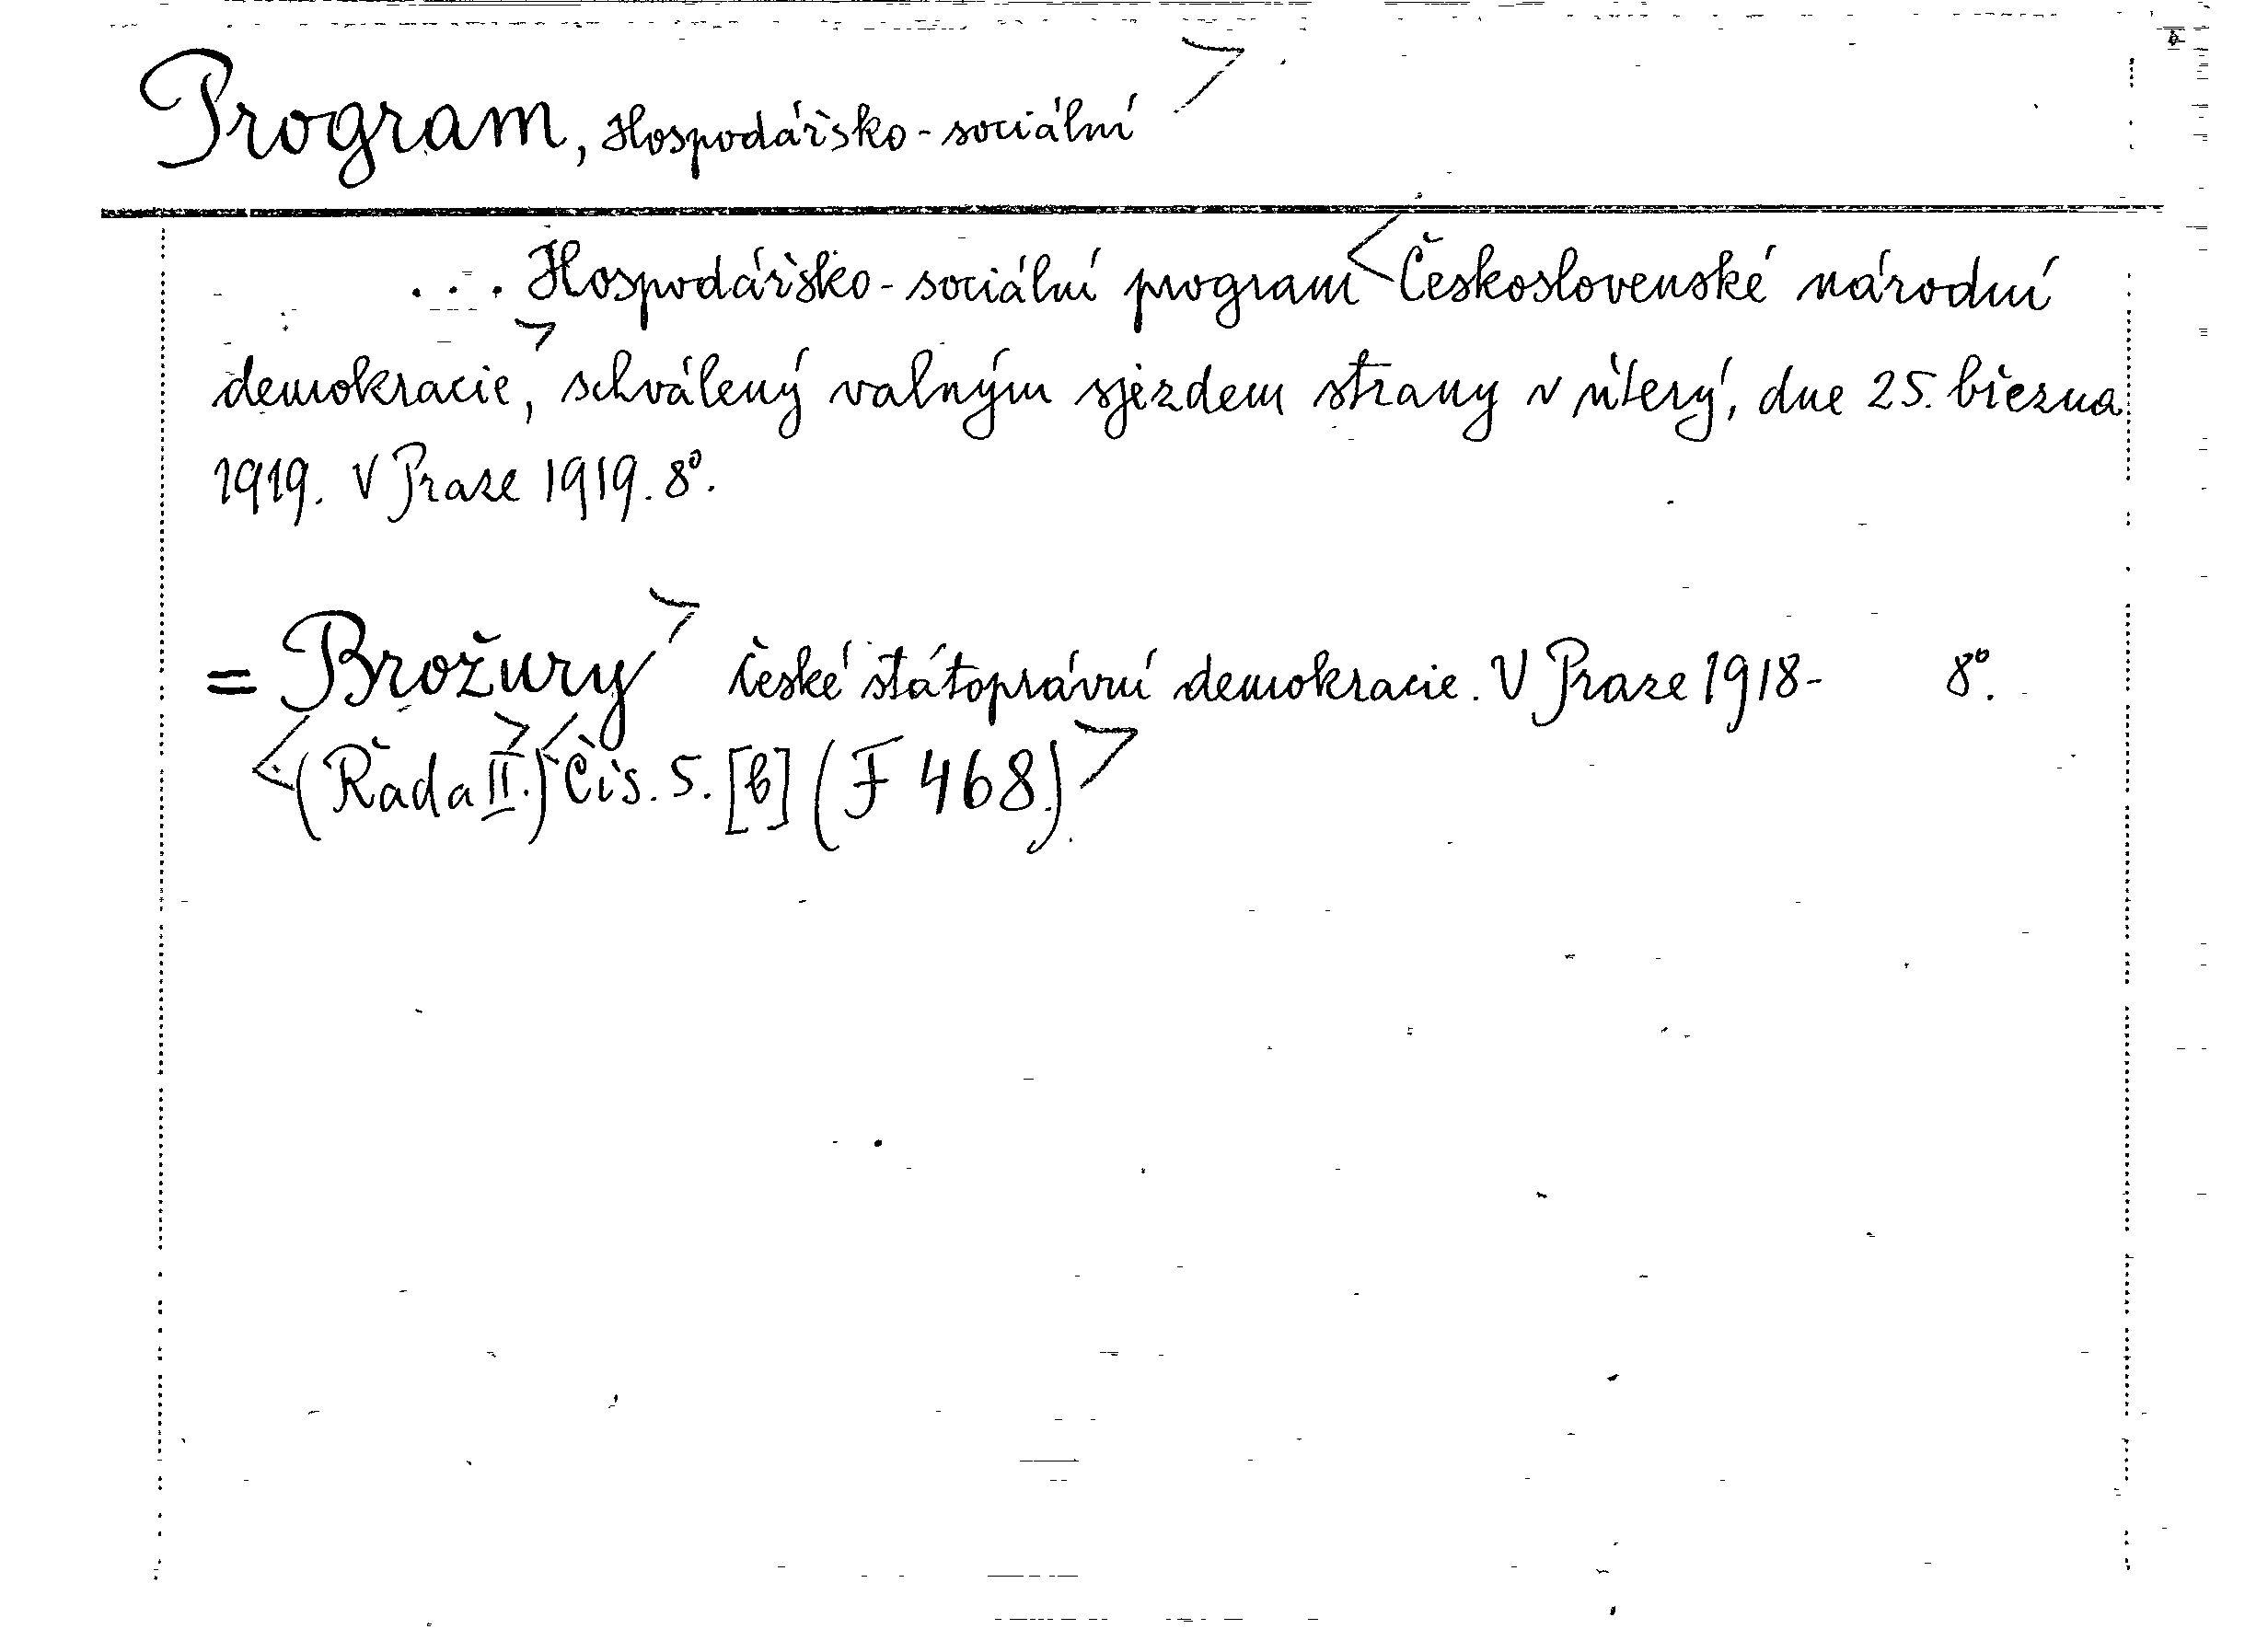 Program, Hospodářsko-sociální >
... Hospodářsko-sociální program < Československé národní
demokracie, > schválený valným sjezdem strany v úterý, dne 25. března
1919. V Praze 1919. 8°.
= Brožury > české státoprávní demokracie. V Praze 1918- 8°.
< (Řada II.) > < Čís. 5. [b] (F 468.) >